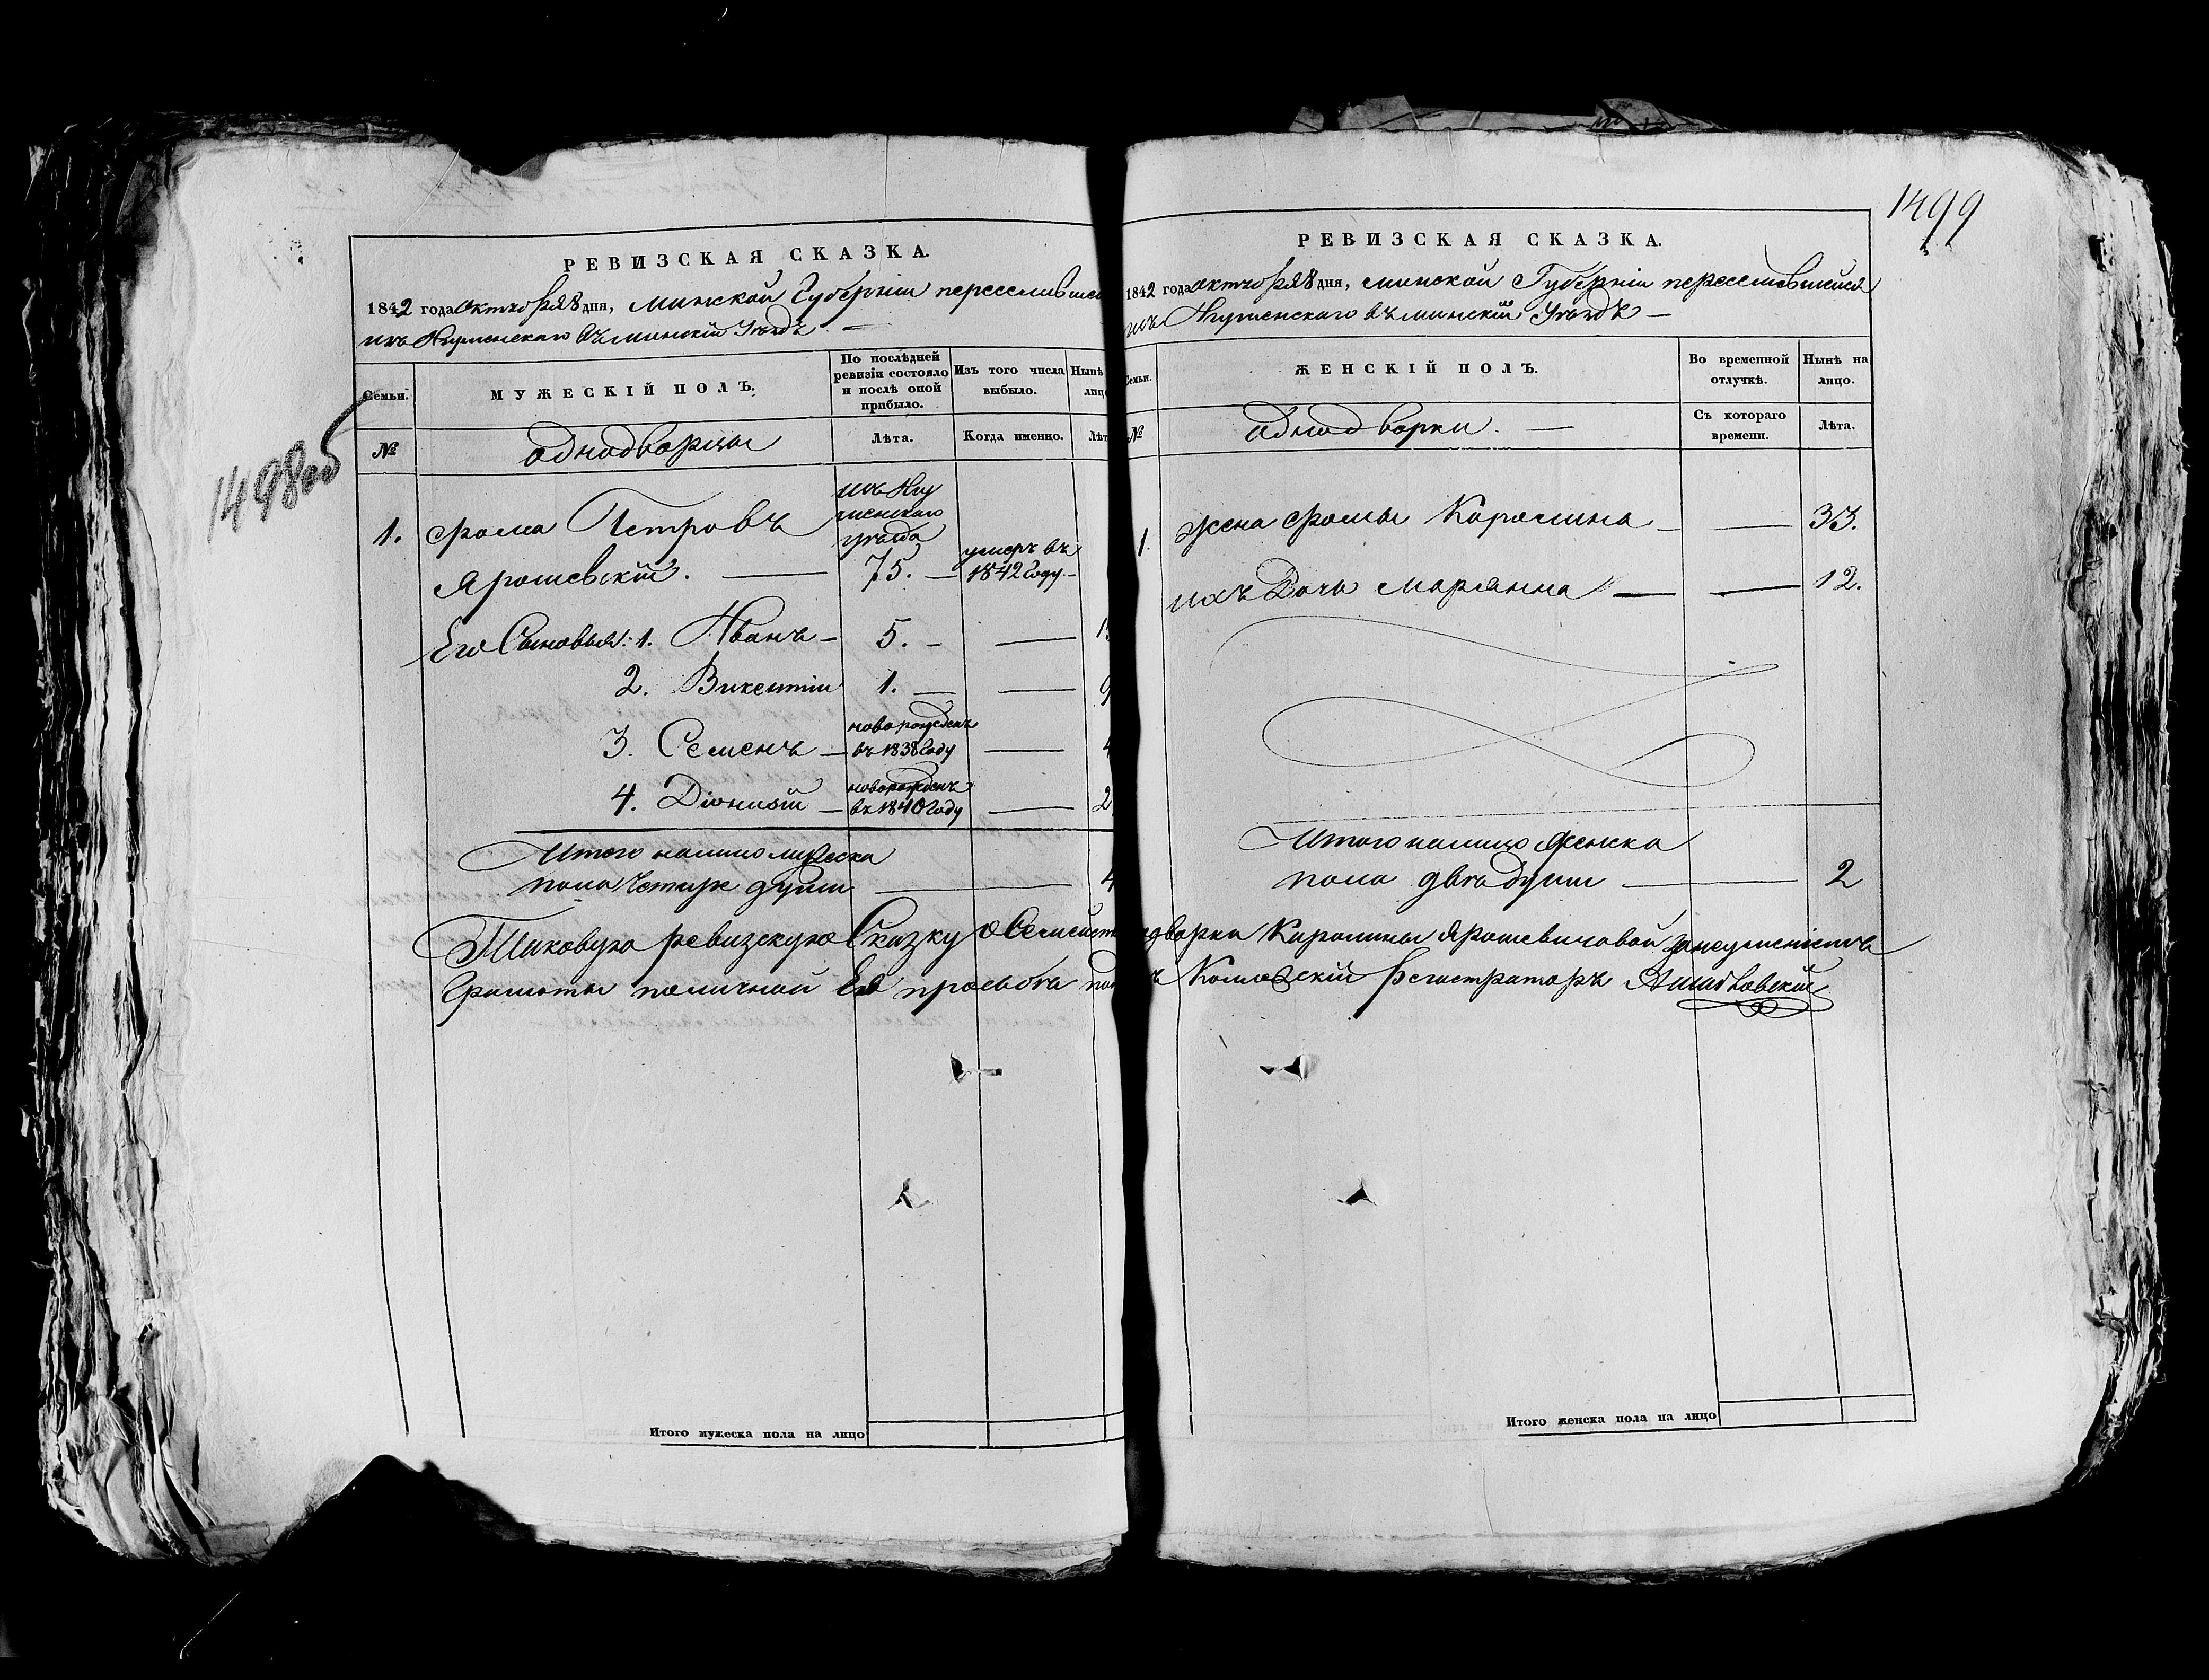 1499
1498об
РЕВИЗСКАЯ СКАЗКА.
1842 года октября 8 дня, Минской Губерніи переселившей
изъ Игуменскаго въ Минскій Уѣздъ —
Семьи.
МУЖЕСКІЙ ПОЛЪ.
По послѣдней ревизіи состояло и послѣ оной прибыло.
Изъ того числа выбыло.
Нынѣ
лиц
№
однодворцы
Лѣта.
Когда именно.
Лѣт
изъ Игу
менскаго
уѣзда
1. Фома Петровъ
Ярошевскій. — 75. — умеръ въ 1842 году. —
Его Сыновья: 1. Иванъ — 5. — — 1
2. Викентій 1. — — 9
3. Семенъ — новорожденъ въ 1838 году — 4
4. Діонисій — новорожденъ въ 1840 году — 2
Итого налицо мужеска
пола четыре души — 4
РЕВИЗСКАЯ СКАЗКА.
1842 года октября 8 дня, Минской Губерніи переселившейся
изъ Игуменскаго въ Минскій Уѣздъ —
Семьи.
ЖЕНСКІЙ ПОЛЪ.
Во временной отлучкѣ.
Нынѣ на лицо.
№
однодворки. —
Съ котораго времени.
Лѣта.
1. Жена Фомы Каролина — — 33.
ихъ Дочь Марянна — — 12.
Итого налицо женска
пола двѣ души — 2
Таковую ревизскую Сказку о Семейст дворки Каролины Ярошевичовой занеуменіемъ
Грамоты поличной Ея прозьбѣ под ъ Колежскій Регистраторъ
Итого мужеска пола на лицо
Итого женска пола на лицо